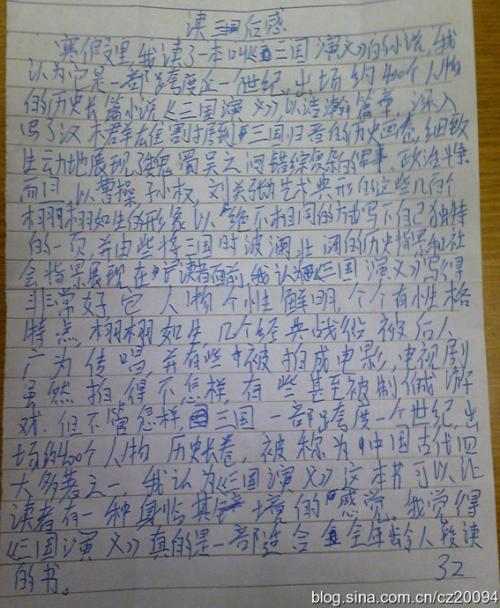 读三国后感
寒假里,我读了一本叫《三国演义》的小说,我
认为它是一部跨度近一世纪,出场约400个人物
的历史长篇小说《三国演义》,以浩瀚篇章,深入
写了汉末群雄割据到三国归晋的历史画卷,细致
生动地展现了魏蜀吴之间错综复杂的军事、政治斗争
而且,以曹操、孙权、刘关张艺术典形的这些几百个
栩栩如生的形象,以绝不相同的方式写下自己独特
的一页,并由些将三国时波澜壮阔的历史情景和社
会指景展现在读者面前,我认为《三国演义》写得
非常好,它人物个性鲜明,个个有性格
特点栩栩如生,几个经典战役被后人
广为传唱,并有些被拍成电影,电视剧
虽然拍得不怎样,有些甚至被制做游
戏.但不管怎样,三国一部跨度一个世纪,出
场约400个人物 历史长卷,被称为中国古代四
大名著之一,我认为《三国演义》这本书可以让
读者有一种身临其境的感觉,我觉得
《三国演义》真的是一部适合全年龄人段读
的书。
32
blog.sina.com.cn/cz20094